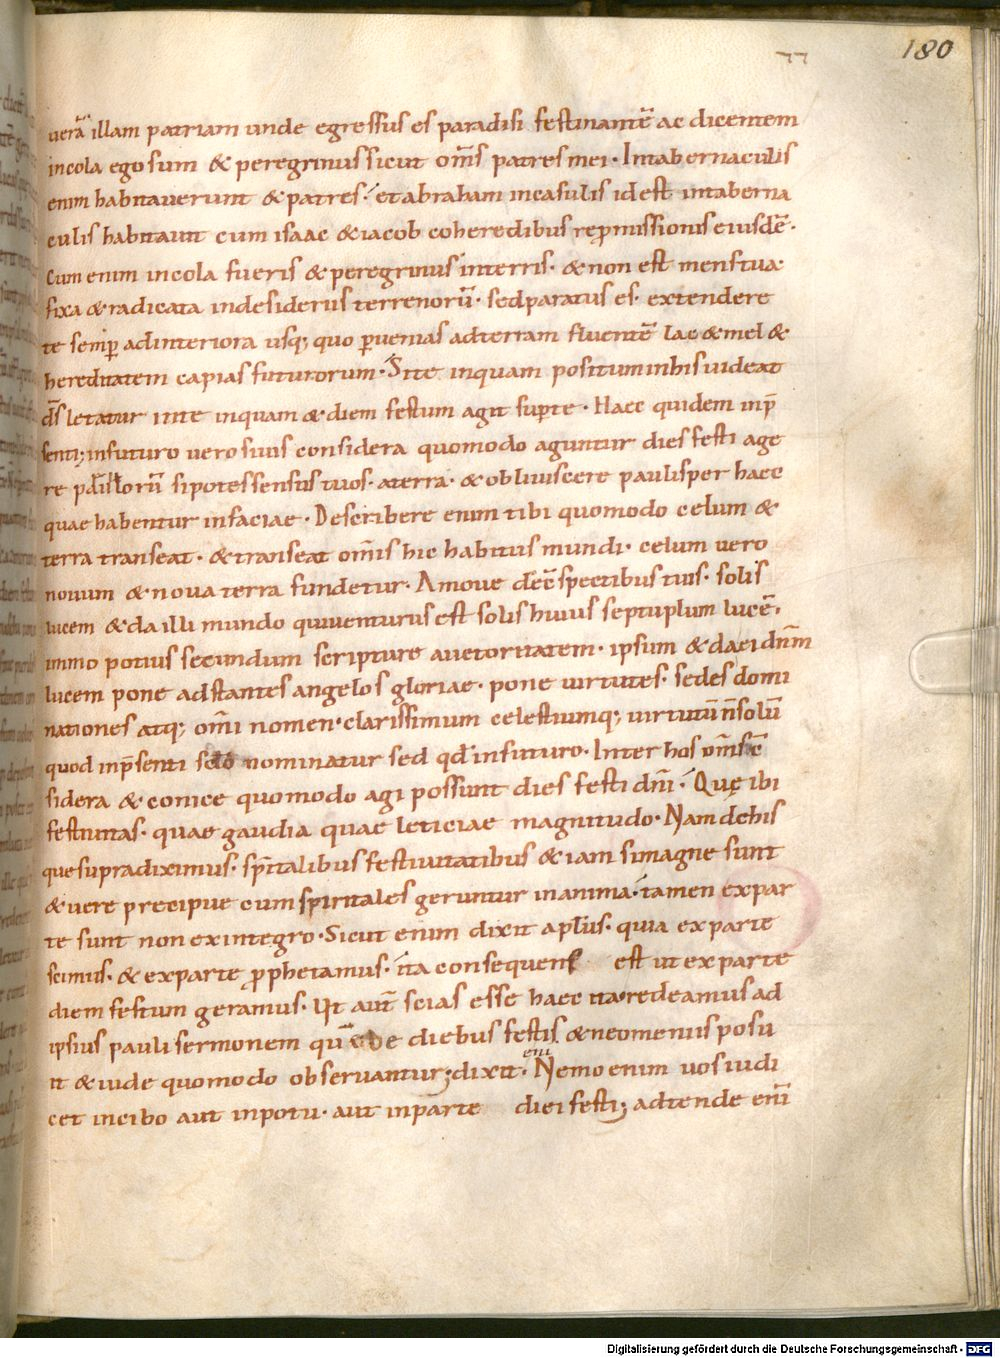 180
uerā illam patriam unde egressus es paradisi festinantē ac dicentem
incola ego sum & peregrinus sicut om̅s patres mei · In tabernaculis
enim habitauerunt & patres · et abraham in casulis id est in taberna
culis habitauit cum isaac & iacob coheredibus repromissionis eiusdē ·
Cum enim incola fueris & peregrinus in terris · & non est mens tua
fixa & radicata in desideriis terrenorū · sed paratus es · extendere
te semp̲ ad interiora usq; quo p̲uenias ad terram fluentē lac & mel &
hereditatem capias futurorum · Si te inquam positum in his uideat
d̅s letatur in te inquam & diem festum agit sup̲ te · Haec quidem in p̅
senti; in futuro uero si uis considera quomodo aguntur dies festi age
re si potes sensus tuos · a terra · & obliuiscere paulisper haec
quae habentur in faciae · Describere enim tibi quomodo celum &
terra transeat · & transeat om̅is hic habitus mundi · celum uero
nouum & noua terra fundetur · Amoue conspectibus tuis · solis
lucem & da illi mundo qui uenturus est solis huius septuplum lucē ·
immo potius secundum scripture auctoritatem · ipsum & da ei dn̅m
lucem pone adstantes angelos gloriae · pone uirtutes · sedes domi
nationes atq; om̅i nomen · clarissimum celestiumq; uirtutū n̅ solū
quod in p̅senti nominatur sed qđ in futuro · Inter hos om̅s c̅
sidera & conice quomodo agi possunt dies festi dn̅i · Quę ibi
festiuitas · quae gaudia quae leticiae magnitudo · Nam de his
que supra diximus · sp̅italibus festiuitatibus & iam si magne sunt
& uere precipue cum spiritales geruntur in anima · tamen ex par
te sunt non ex integro · Sicut enim dixit aplus · quia ex parte
scimus · & ex parte prophetamus · ita consequens est ut ex parte
diem festum geramus · Ut aut̅ scias esse haec ita · redeamus ad
ipsius pauli sermonem quē de diebus festis & neomeniis posu
it & iude quomodo obseruantur; dixit · Nemo enim uos iudi
cet in cibo aut in potu · aut in parte diei festi; adtende eni̅
Digitalisierung gefördert durch die Deutsche Forschungsgemeinschaft - DFG